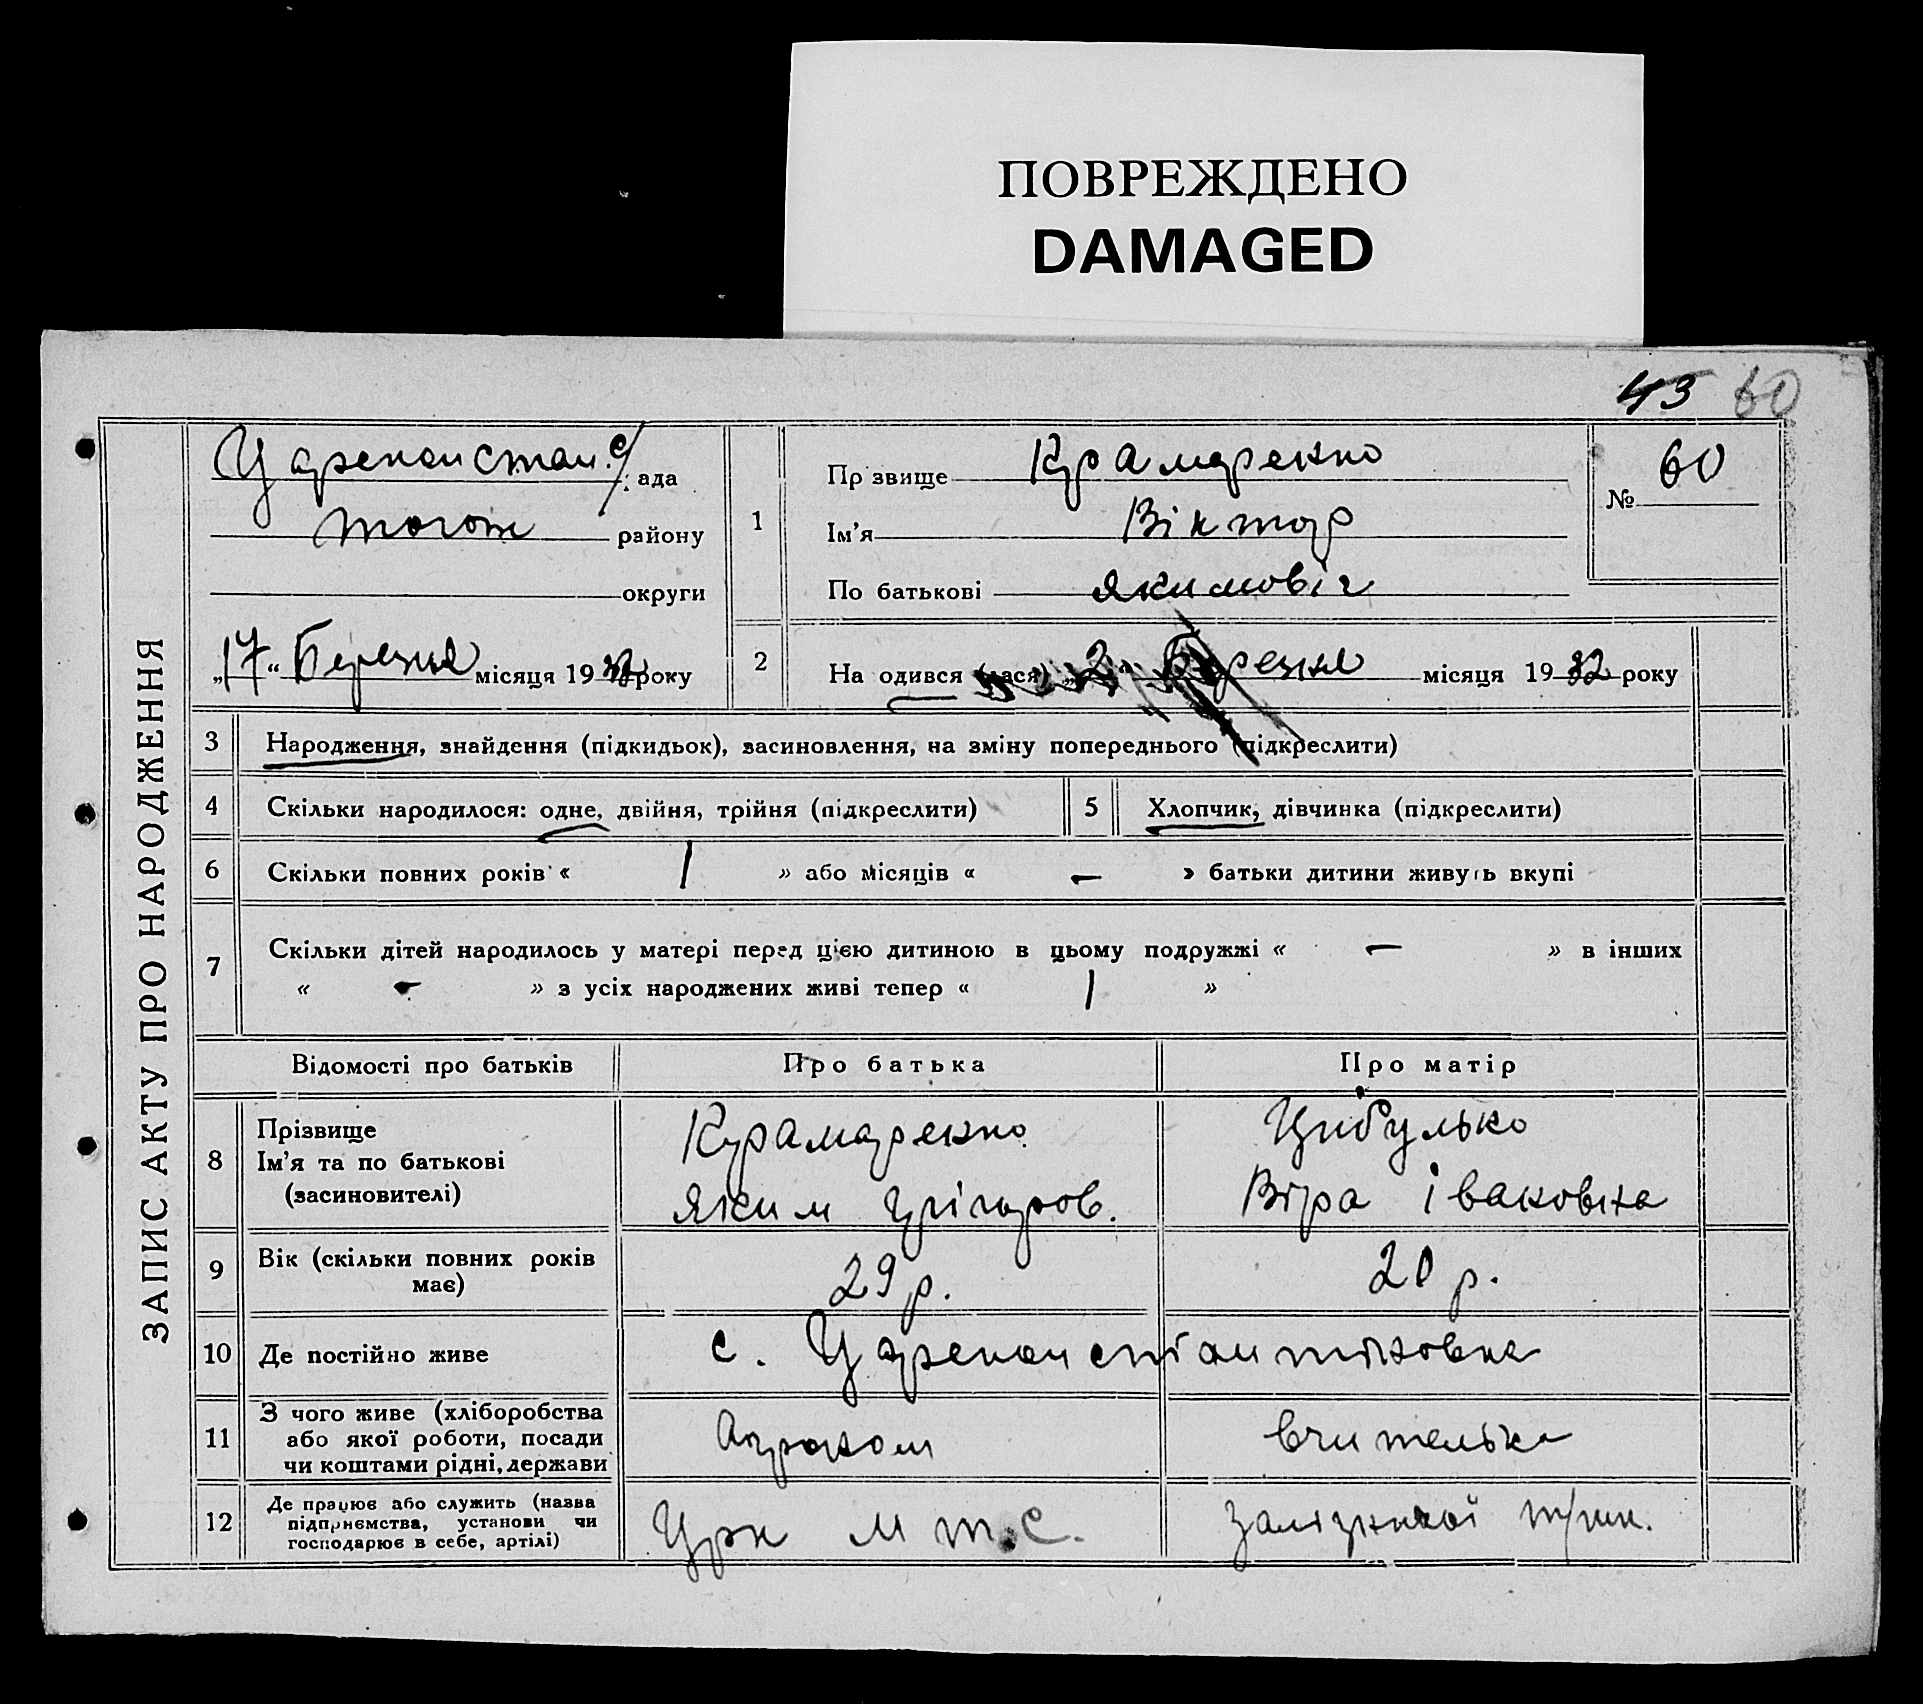 ПОВРЕЖДЕНО
DAMAGED
43 60
ЗАПИС АКТУ ПРО НАРОДЖЕННЯ
Цареконстан. с/ ада
району
округи
„17“ Березня місяця 1932 року
1
Пр звище Крамаренко
Ім’я Віктор
По батькові Якимовіч
№ 60
2
На одився (лася) „2“ Березня місяця 1932 року
3 Народження, знайдення (підкидьок), засиновлення, на зміну попереднього (підкреслити)
4 Скільки народилося: одне, двійня, трійня (підкреслити)
5 Хлопчик, дівчинка (підкреслити)
6 Скільки повних років « 1 » або місяців « — » батьки дитини живуть вкупі
7 Скільки дітей народилось у матері перед цією дитиною в цьому подружжі « — » в інших
« - » з усіх народжених живі тепер « 1 »
Відомості про батьків Про батька Про матір
8 Прізвище
Ім’я та по батькові
(засиновителі)
Крамаренко
Яким Грігоров.
Цибулько
Віра Івановна
9 Вік (скільки повних років
має)
29 р.
20 р.
10 Де постійно живе с. Цареконстантіновка
11 З чого живе (хліборобства
або якої роботи, посади
чи коштами рідні, держави
Агроном
вчителька
12 Де працює або служить (назва
підприємства, установи чи
господарює в себе, артілі)
Црк М т.с.
Залізничої